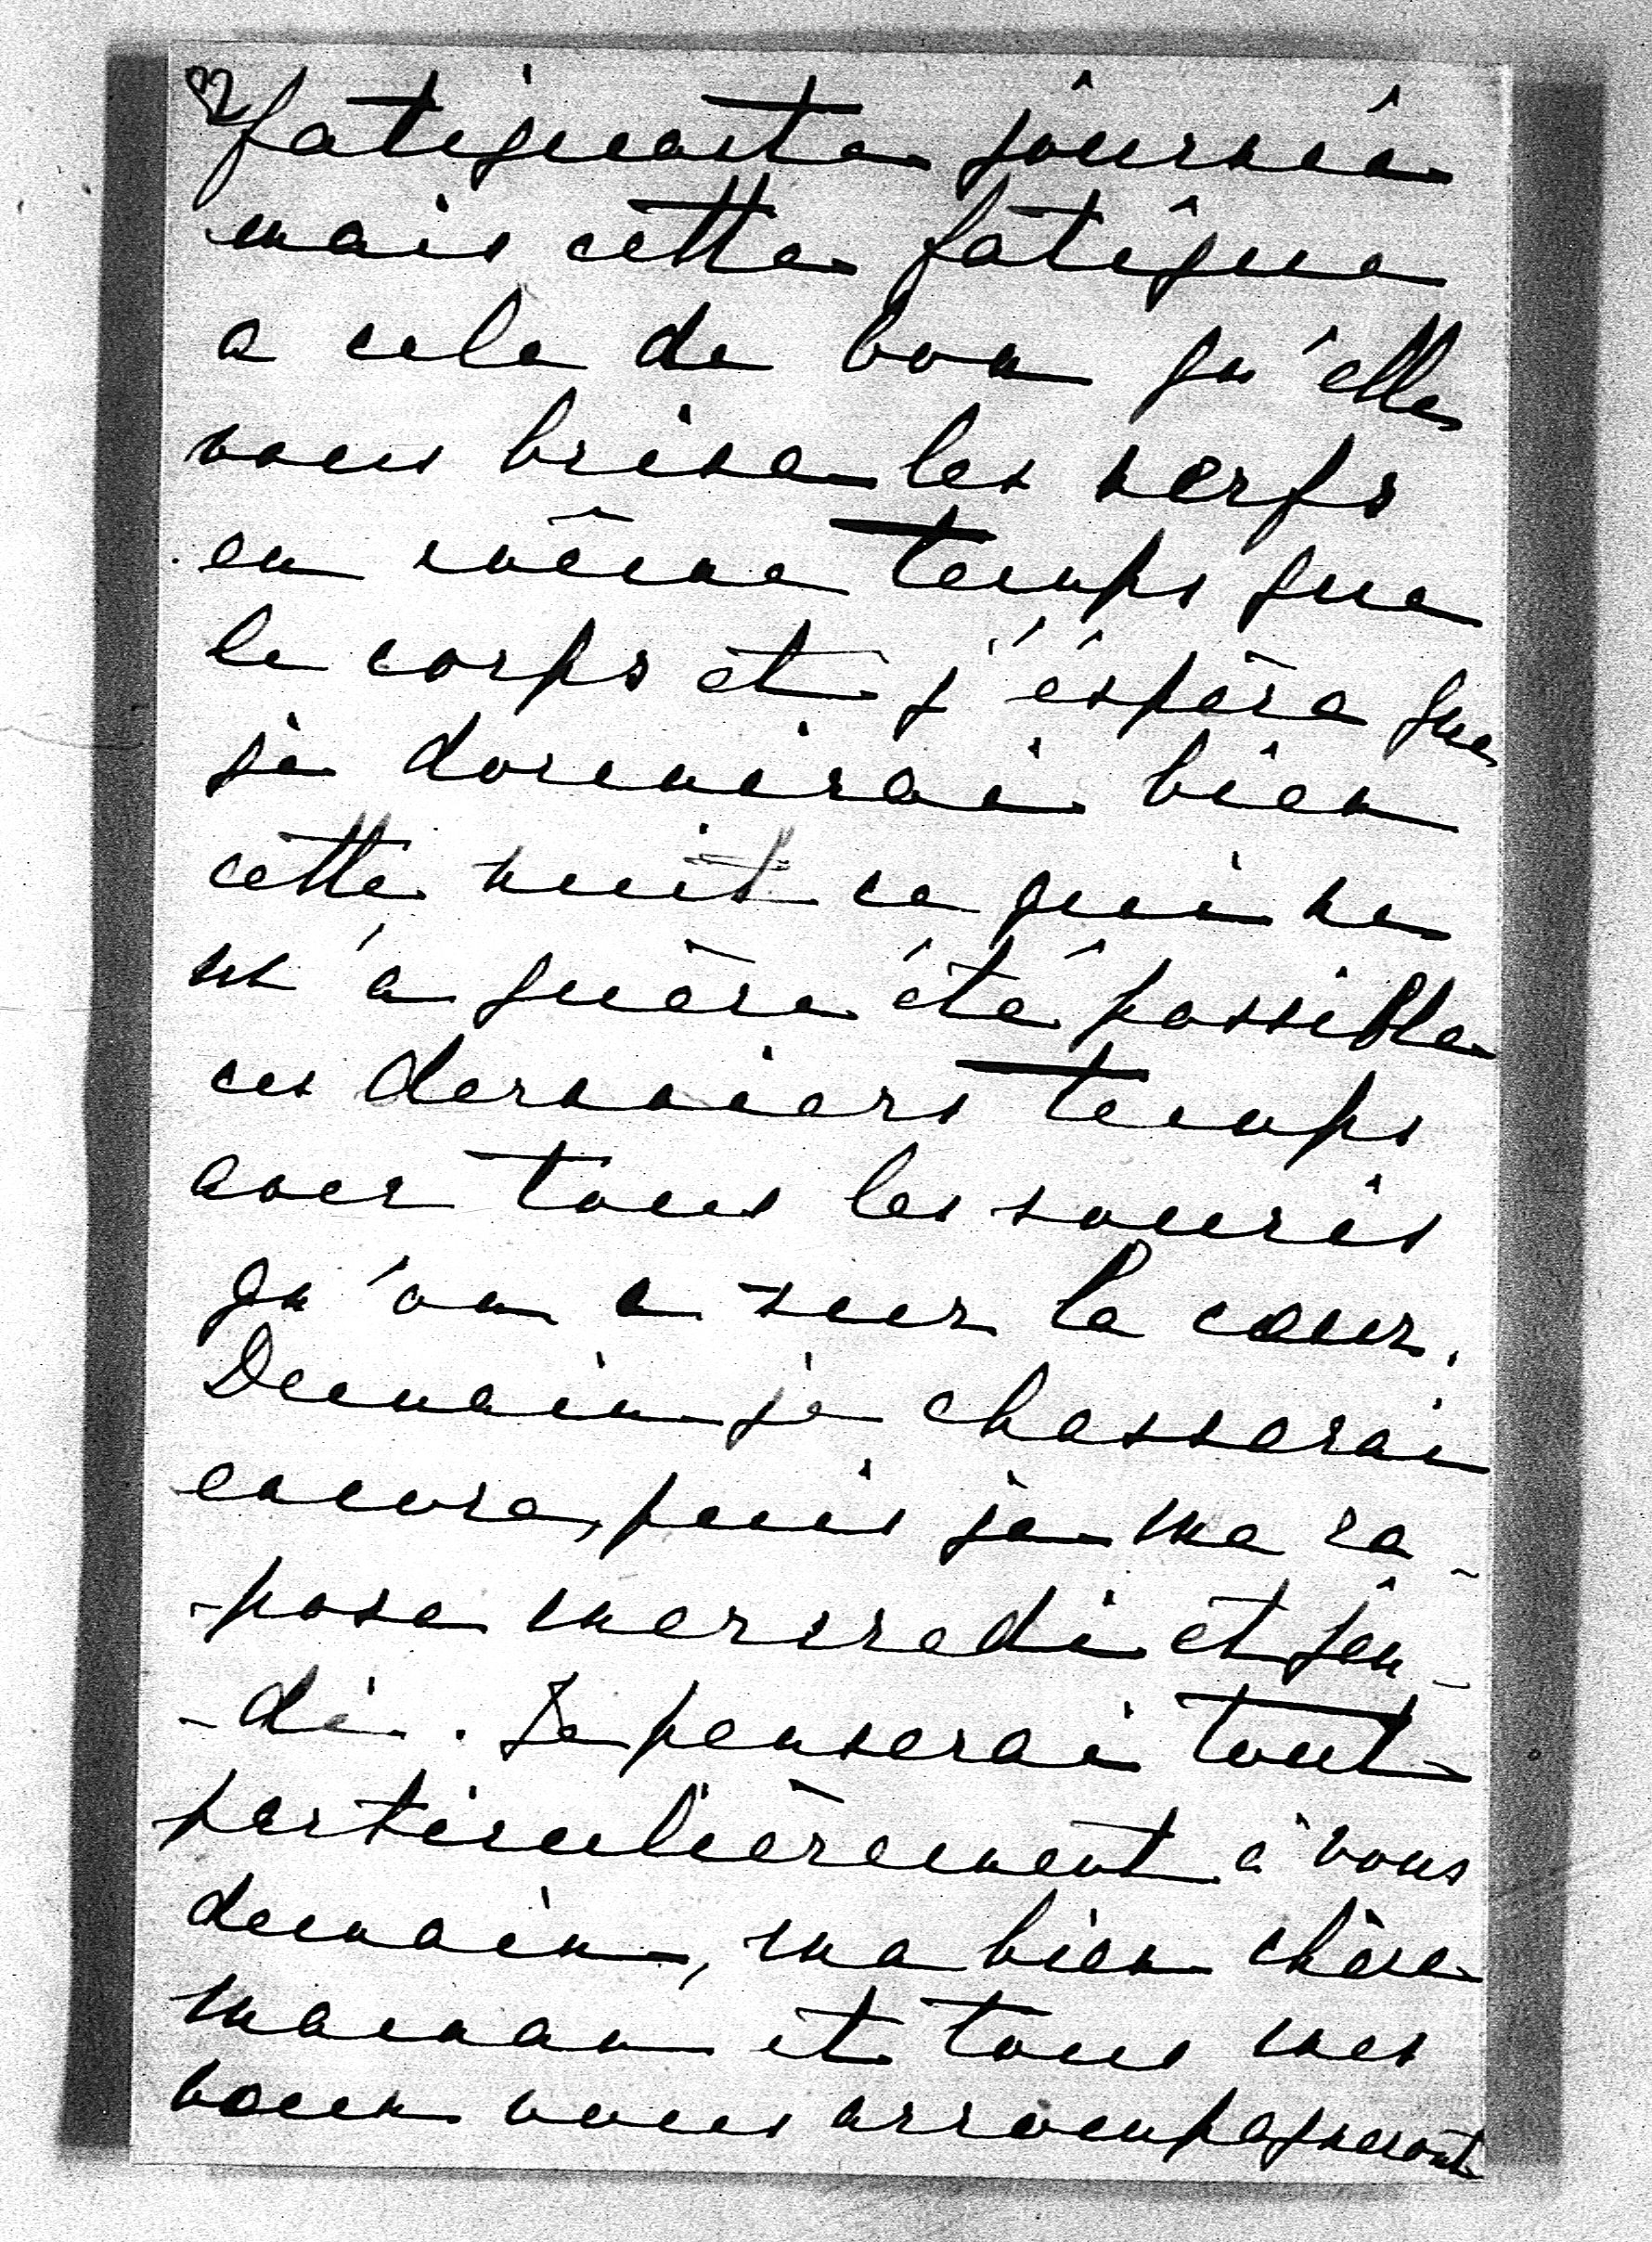 fatiguante journée
mais cette fatigue
a cela de bon qu'elle
vous brise les nerfs
en même temps que
le corps et j'éspère que
je dormirai bien
cette nuit ce qui ne
m'a guère été possible
ces derniers temps
avec tous les soucis
qu'on a sur le cœur.
Demain je chasserai
encore, puis je me re-
-pose mercredi et jeu-
-di. Je penserai tout
particulièrement à vous
demain, ma bien chère
maman et tous mes
vœux vous accompagneront